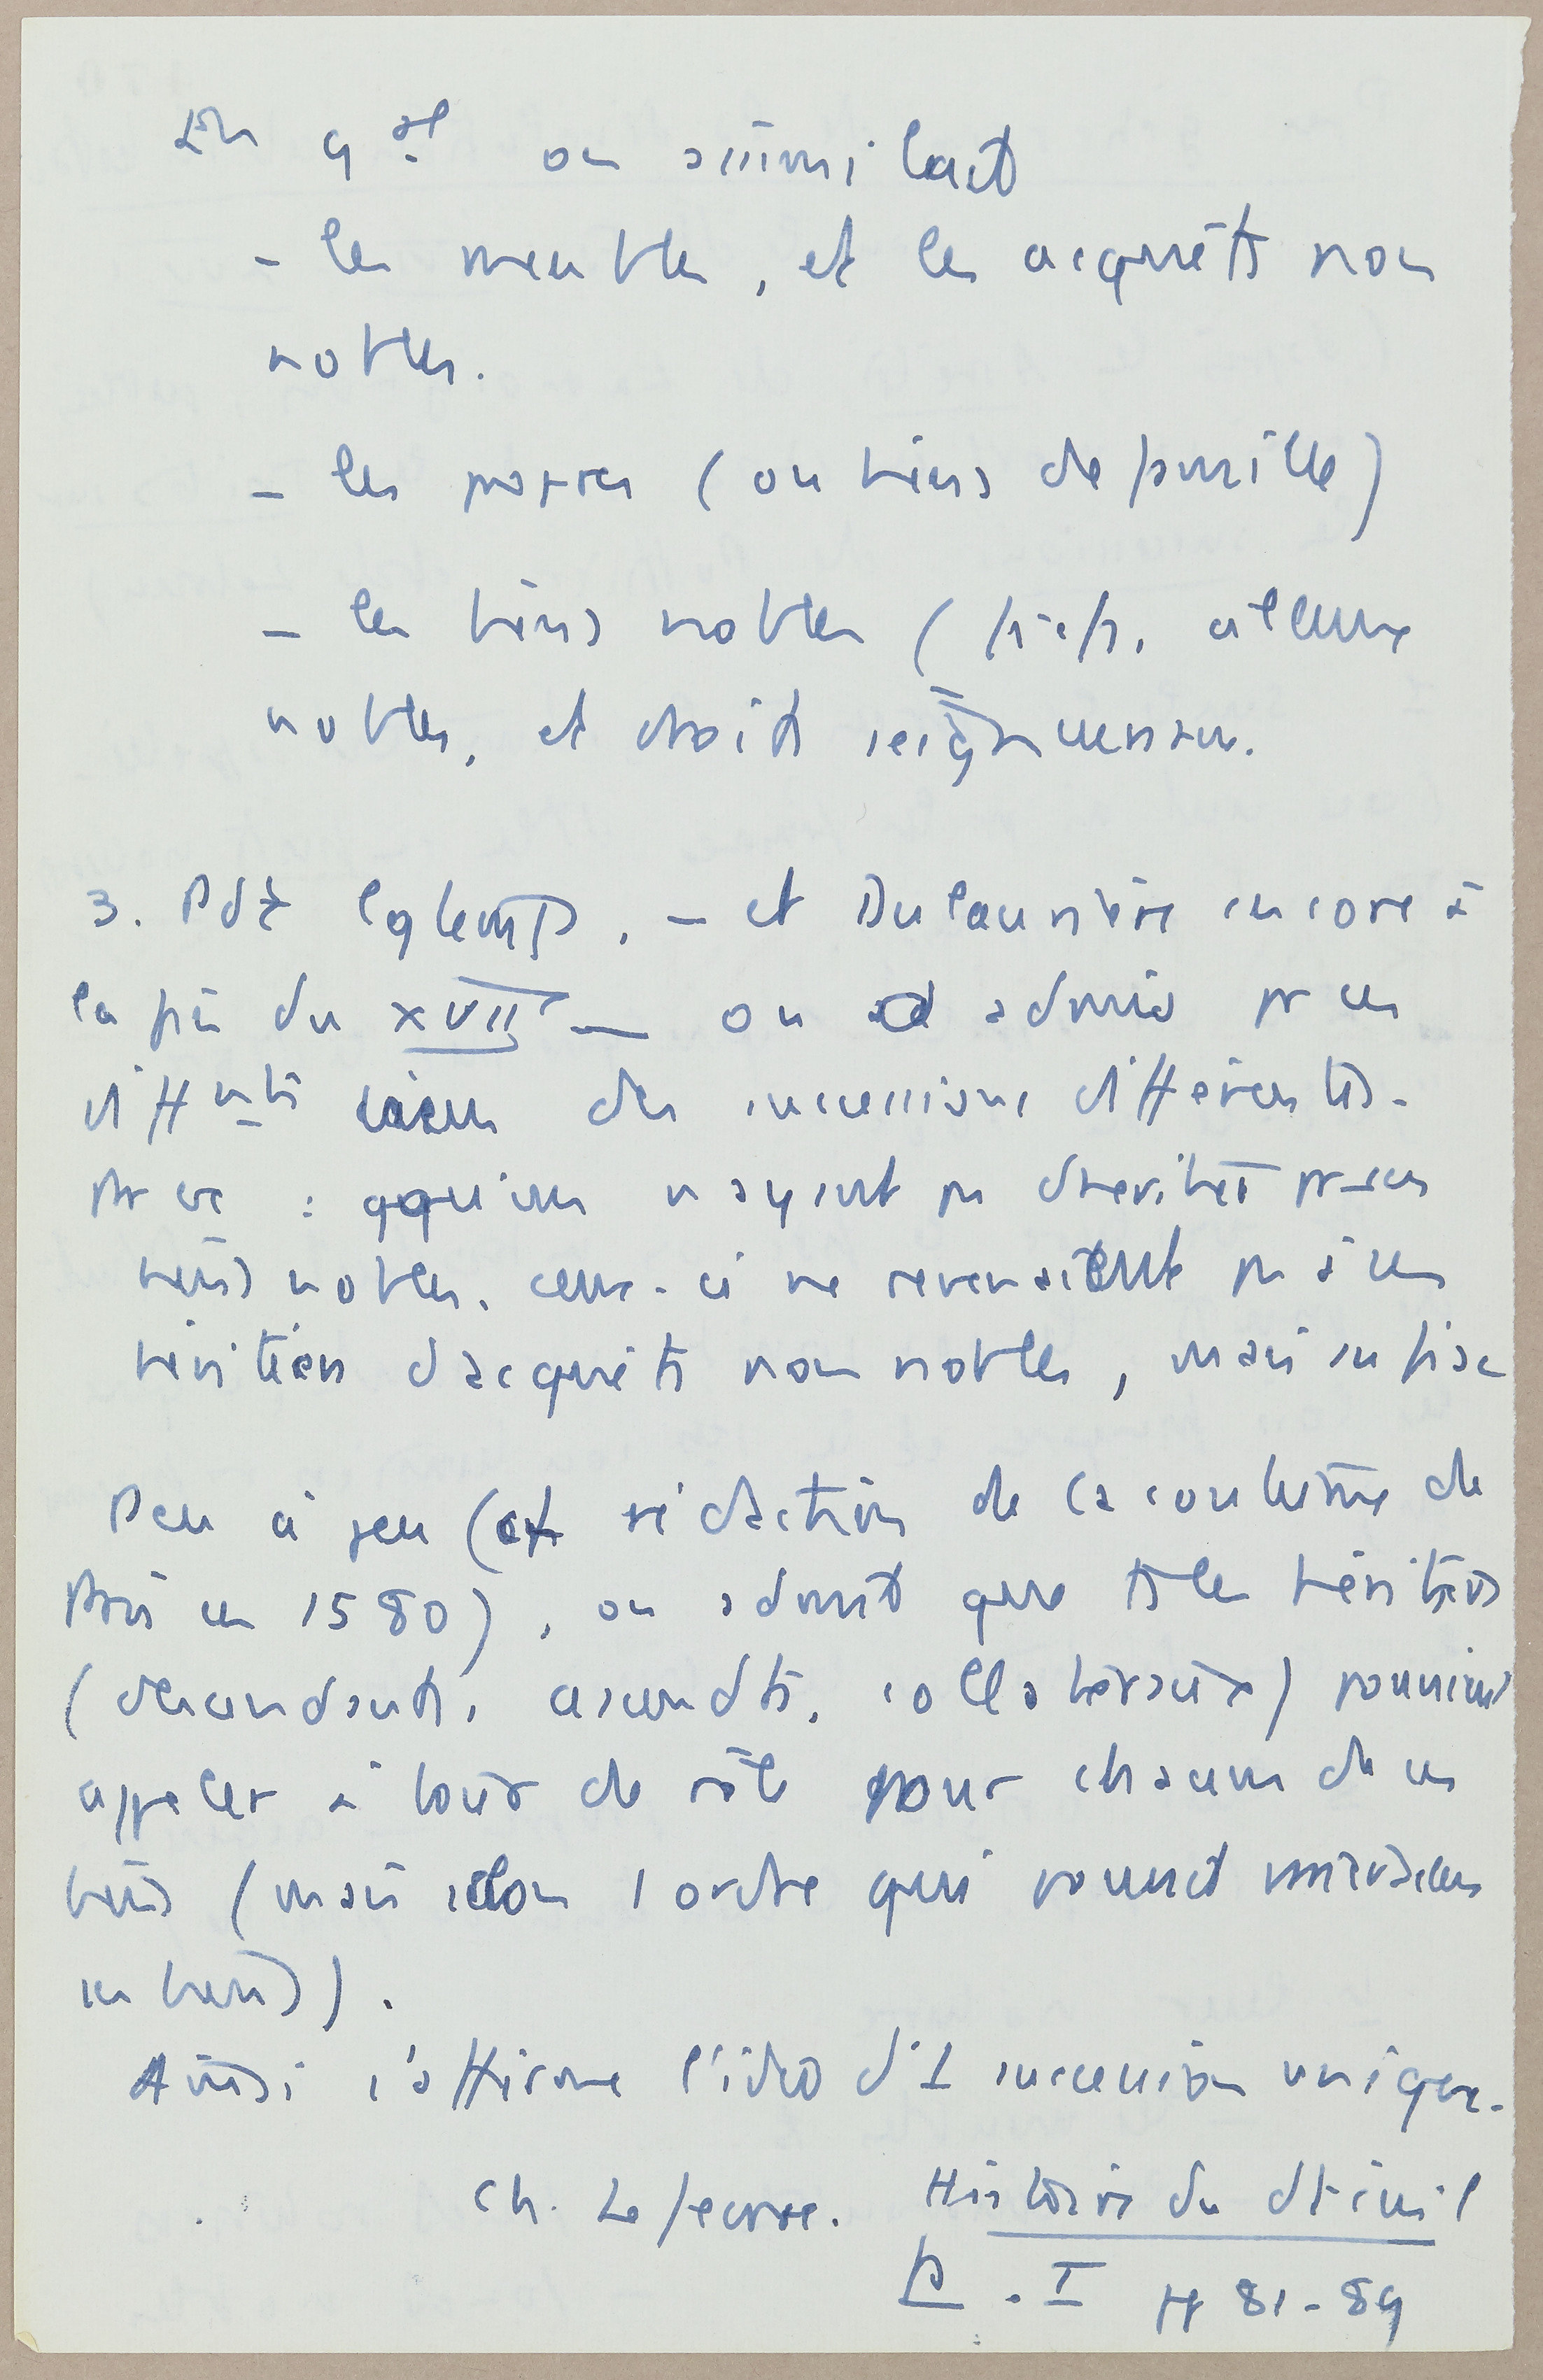 En gal on assimilait
- les meubles, et les acquêts non
nobles.
- les propres (ou biens de famille)
- les biens nobles (fiefs, alleux
nobles, et droits seigneuriaux.
3. Pdt lgtemps, - et Delaurière encore à
la fin du XVII — on admis pr ces
difftes des successions différentes.
Par ex : qqu'uns n'ayant pas d'héritier pr ses
biens nobles, ceux-ci ne revenaient pas à ses
héritiers d'acquêts non nobles, mais au fisc
Peu à peu (cf rédaction de la coutume de
Paris en 1580), on admit que ts les héritiers
(descendants, ascendts, collatéraux) pouvaient
appeler à tour de rôle pour chacun de ces
biens (mais selon l'ordre qui pouvait varier selon
les biens).
Ainsi s'affirme l'idée d'1 succession unique.
Ch. Lefebvre. Histoire du dt civil
p. I pp 81-89